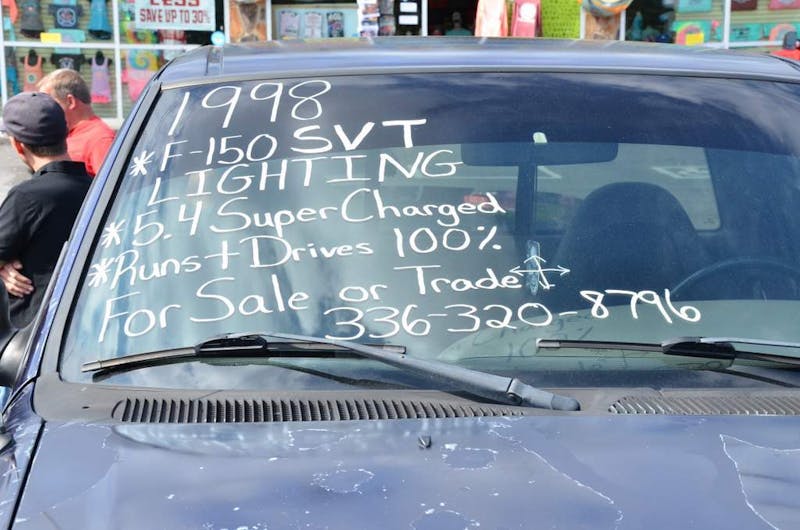 LESS
SAVE UP TO 30%
1998
* F-150 SVT
LIGHTING
* 5.4 SuperCharged
* Runs + Drives 100%
For Sale or Trade
336-320-8796